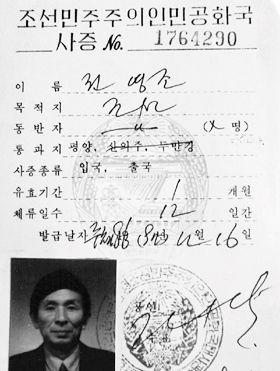 조선민주주의인민공화국
사증 No. 1764290
이 름 전영조
목적지
동반자 (x 명)
통과지 평양, 신의주, 두만강
사증종류 입국, 출국
유효기간 1 개월
체류일수 12 일간
발급날자 12월 16일